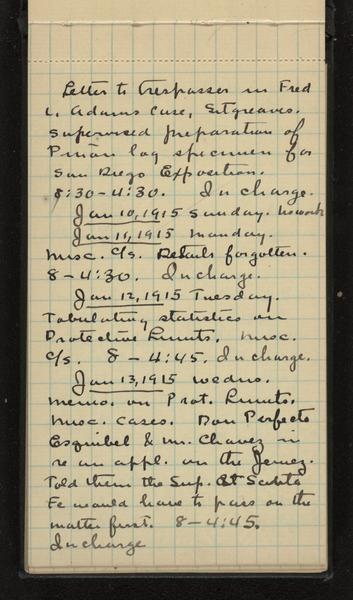 Letter to trespasser in Fred
L. Adams case, Sitgreaves.
Supervised preparation of
Pinon log specimen for
San Diego Exposition.
8:30-4:30. In charge.
Jan 10, 1915 Sunday. No work
Jan 11, 1915 Monday.
Misc. c/s. Details forgotten.
8-4:30. In charge.
Jan 12, 1915 Tuesday.
Tabulating statistics on
Protective Limits. Misc.
c/s. 8-4:45. In charge.
Jan 13, 1915 Wednes.
Memo. on Prot. Limits.
Misc. cases. Don Perfecto
Esquibel & Mr. Chavez in
re an appl. on the Jemez.
Told them the Sup. at Santa
Fe would have to pass on the
matter first. 8-4:45.
In charge